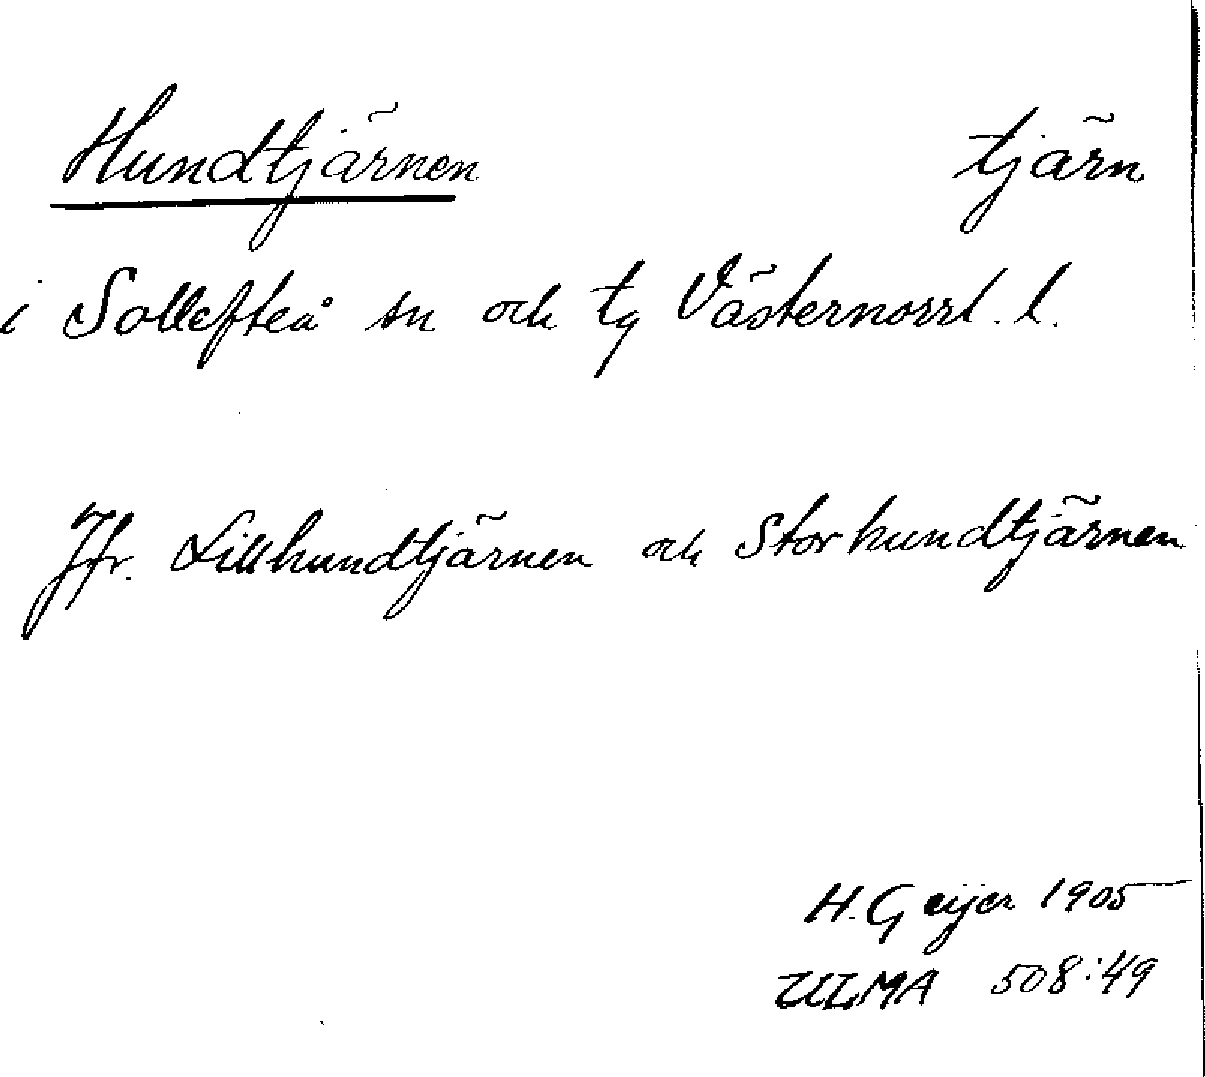 Hundtjärnen tjärn
i Sollefteå sn och tg Västernorrl. l.
Jfr. Lillhundtjärnen och Storhundtjärnen
H. Geijer 1905
ULMA 508:49